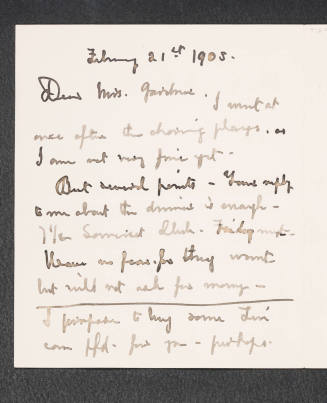 February 21st 1905.
Dear Mrs. Gardner. I went at
once after the plays. as
I am not very fine yet -
But several points - Your reply
to me about the is enough -
The Somerset Club - Friday next -
Have no fear. for they want
but will not ask for money -
I propose to buy some
com pfd. for you - perhaps.